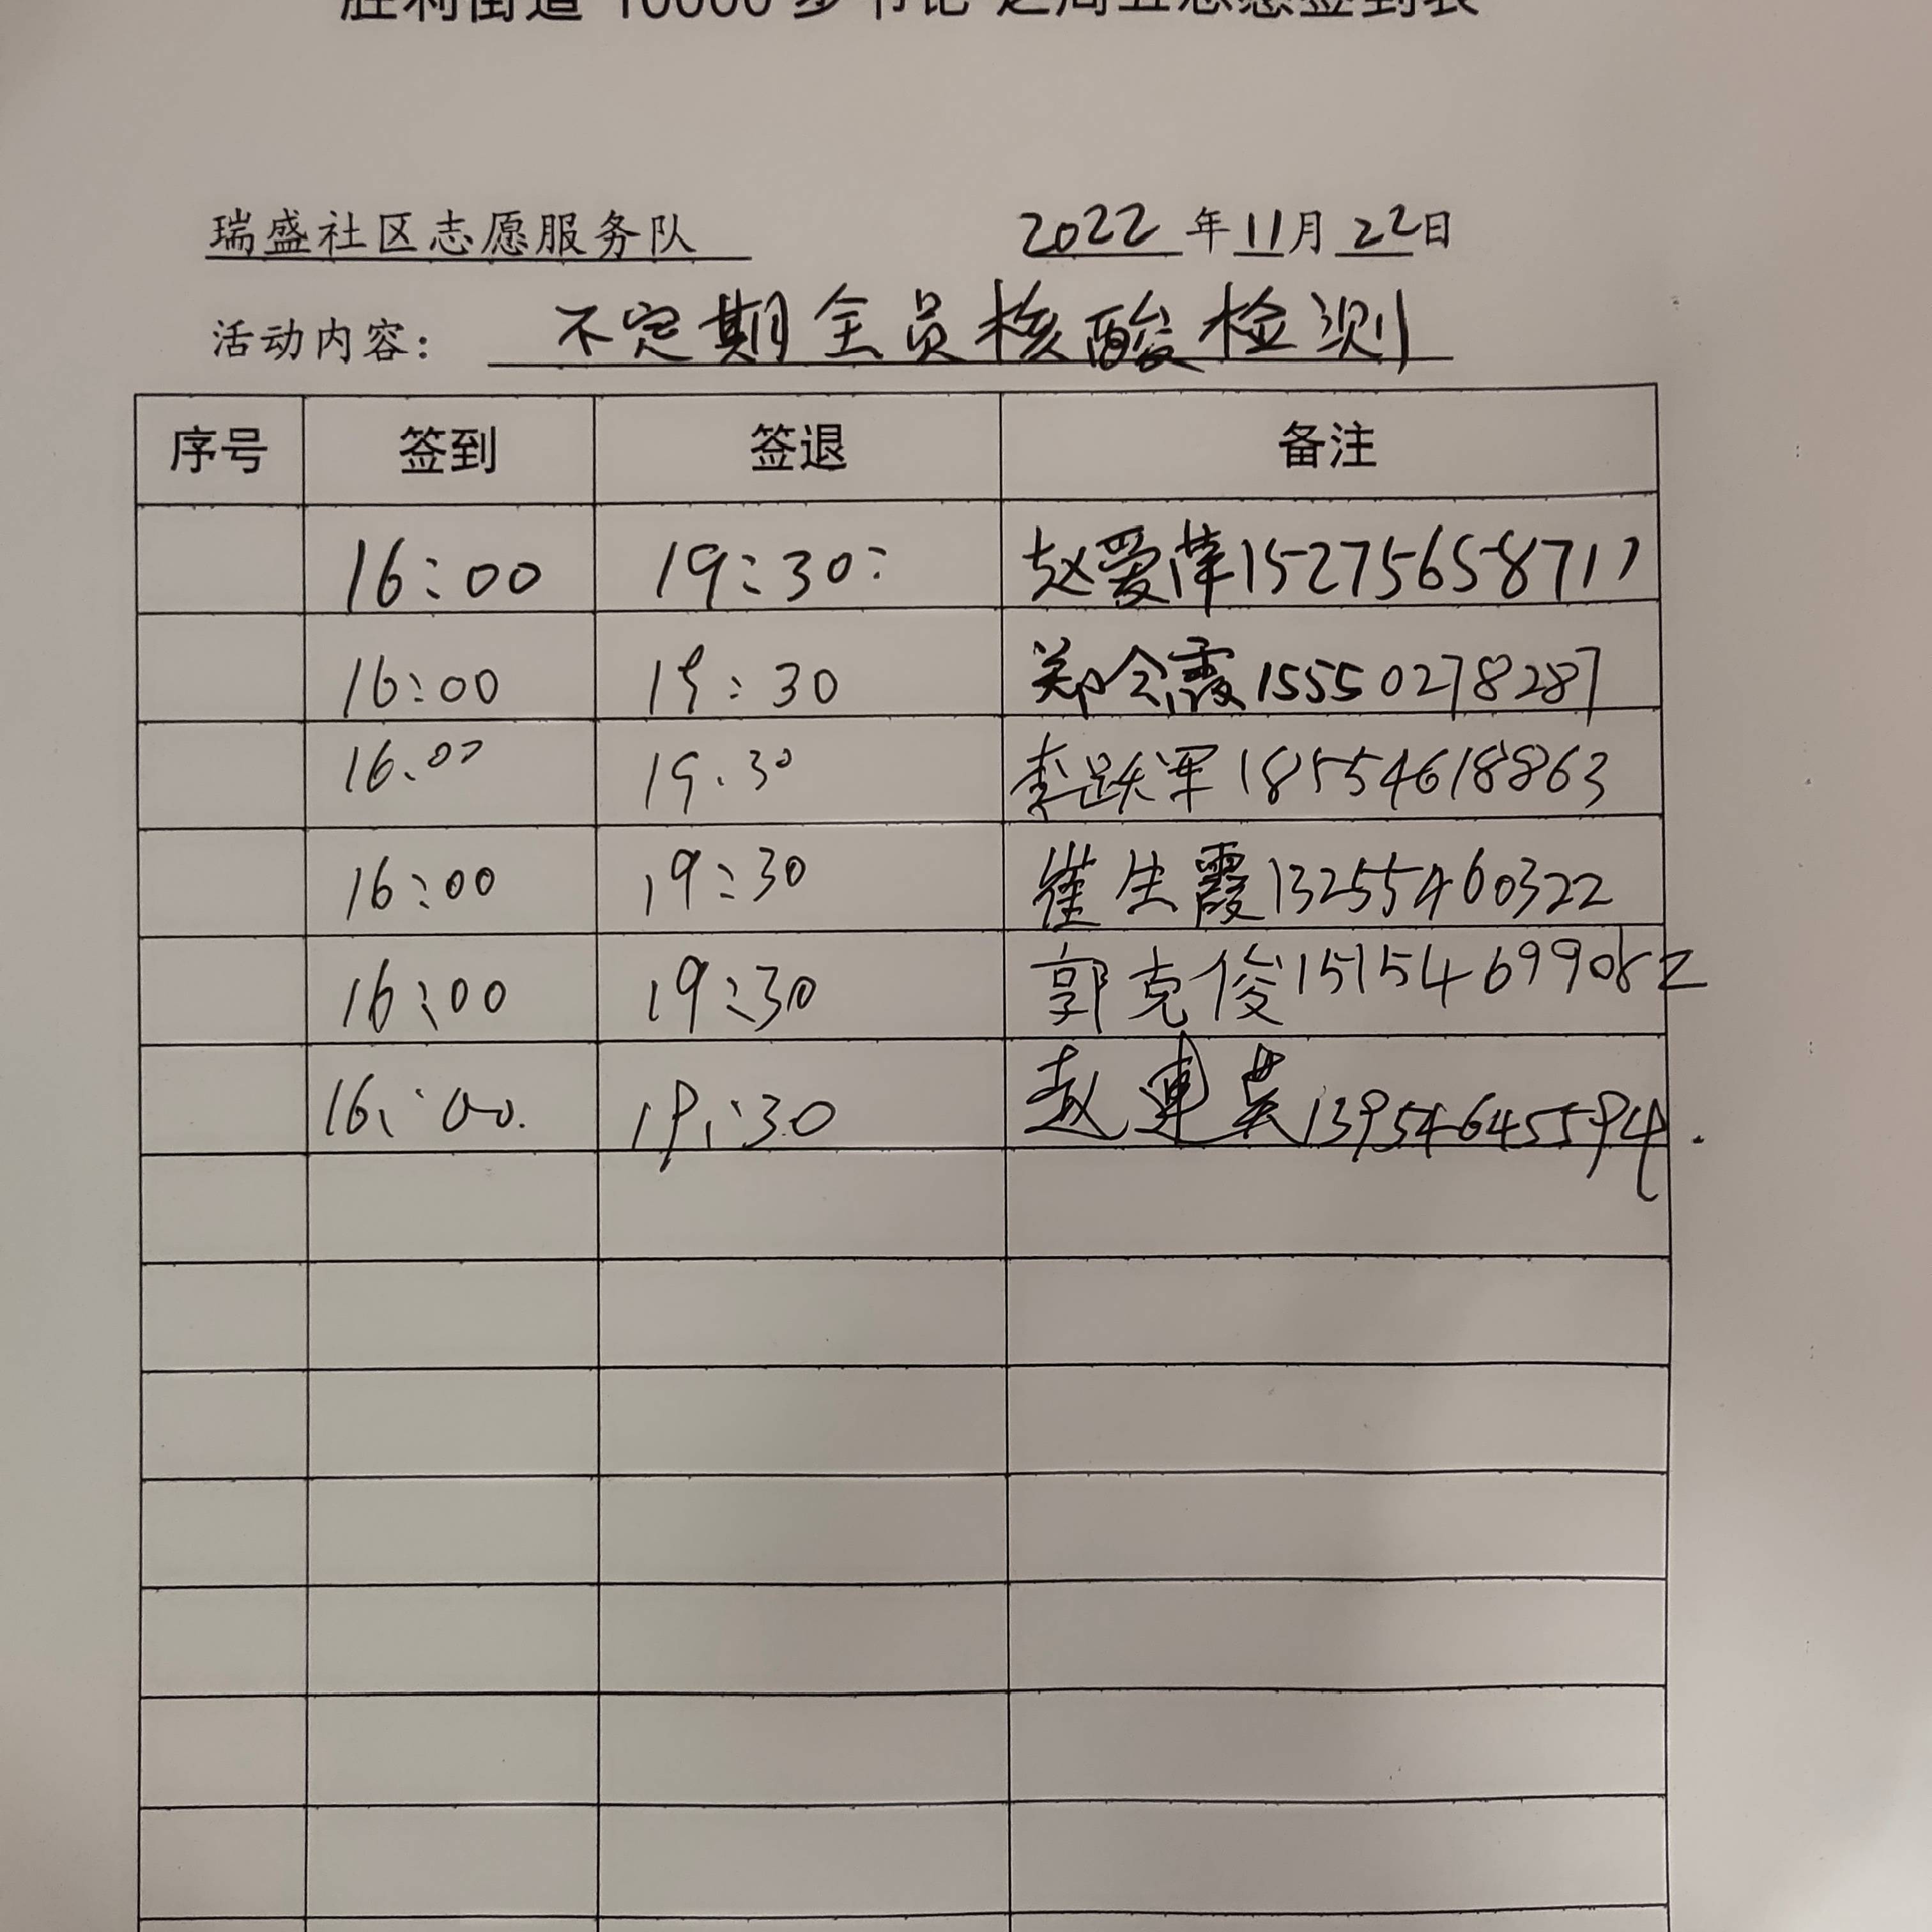 胜利街道“10000 步书记”之周五志愿签到表
瑞盛社区志愿服务队 2022 年 11月 22日
活动内容: 不定期全员核酸检测
序号 签到 签退 备注
16:00 19:30: 赵爱萍15275658717
16:00 19:30 郑会霞15550278287
16.00 19.30 李跃军18554618863
16:00 19:30 崔生霞13255460322
16:00 19:30 郭克俊15154699082
16:00. 19:30 赵連英13954645594.